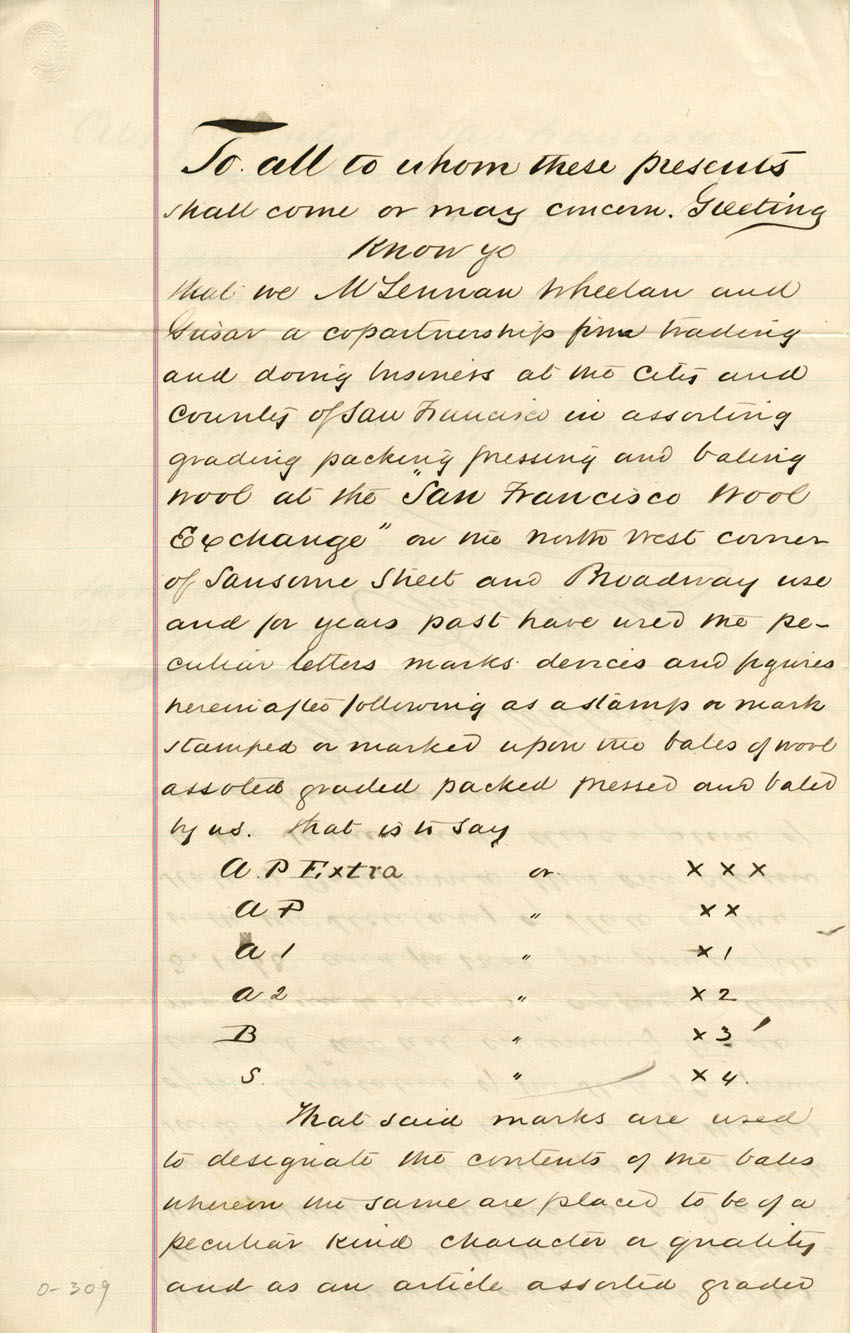 To all to whom these presents
shall come or may concern. Greeting
Know ye
that we McLennan Wheelan and
Grisar a copartnership firm trading
and doing business at the City and
County of San Francisco in assorting
grading packing pressing and baling
wool at the "San Francisco Wool
Exchange" on the North West corner
of Sansome Street and Broadway use
and for years past have used the pe-
culiar letters marks devices and figures
hereinafter following as a stamp or mark
stamped or marked upon the bales of wool
assorted graded packed pressed and baled
by us. That is to say
A.P Extra or X X X
A P " X X
A 1 " X 1
A 2 " X 2
B " X 3
S. " X 4.
That said marks are used
to designate the contents of the bales
wherein the same are placed to be of a
peculiar kind character or quality
and as an article assorted graded
0-309